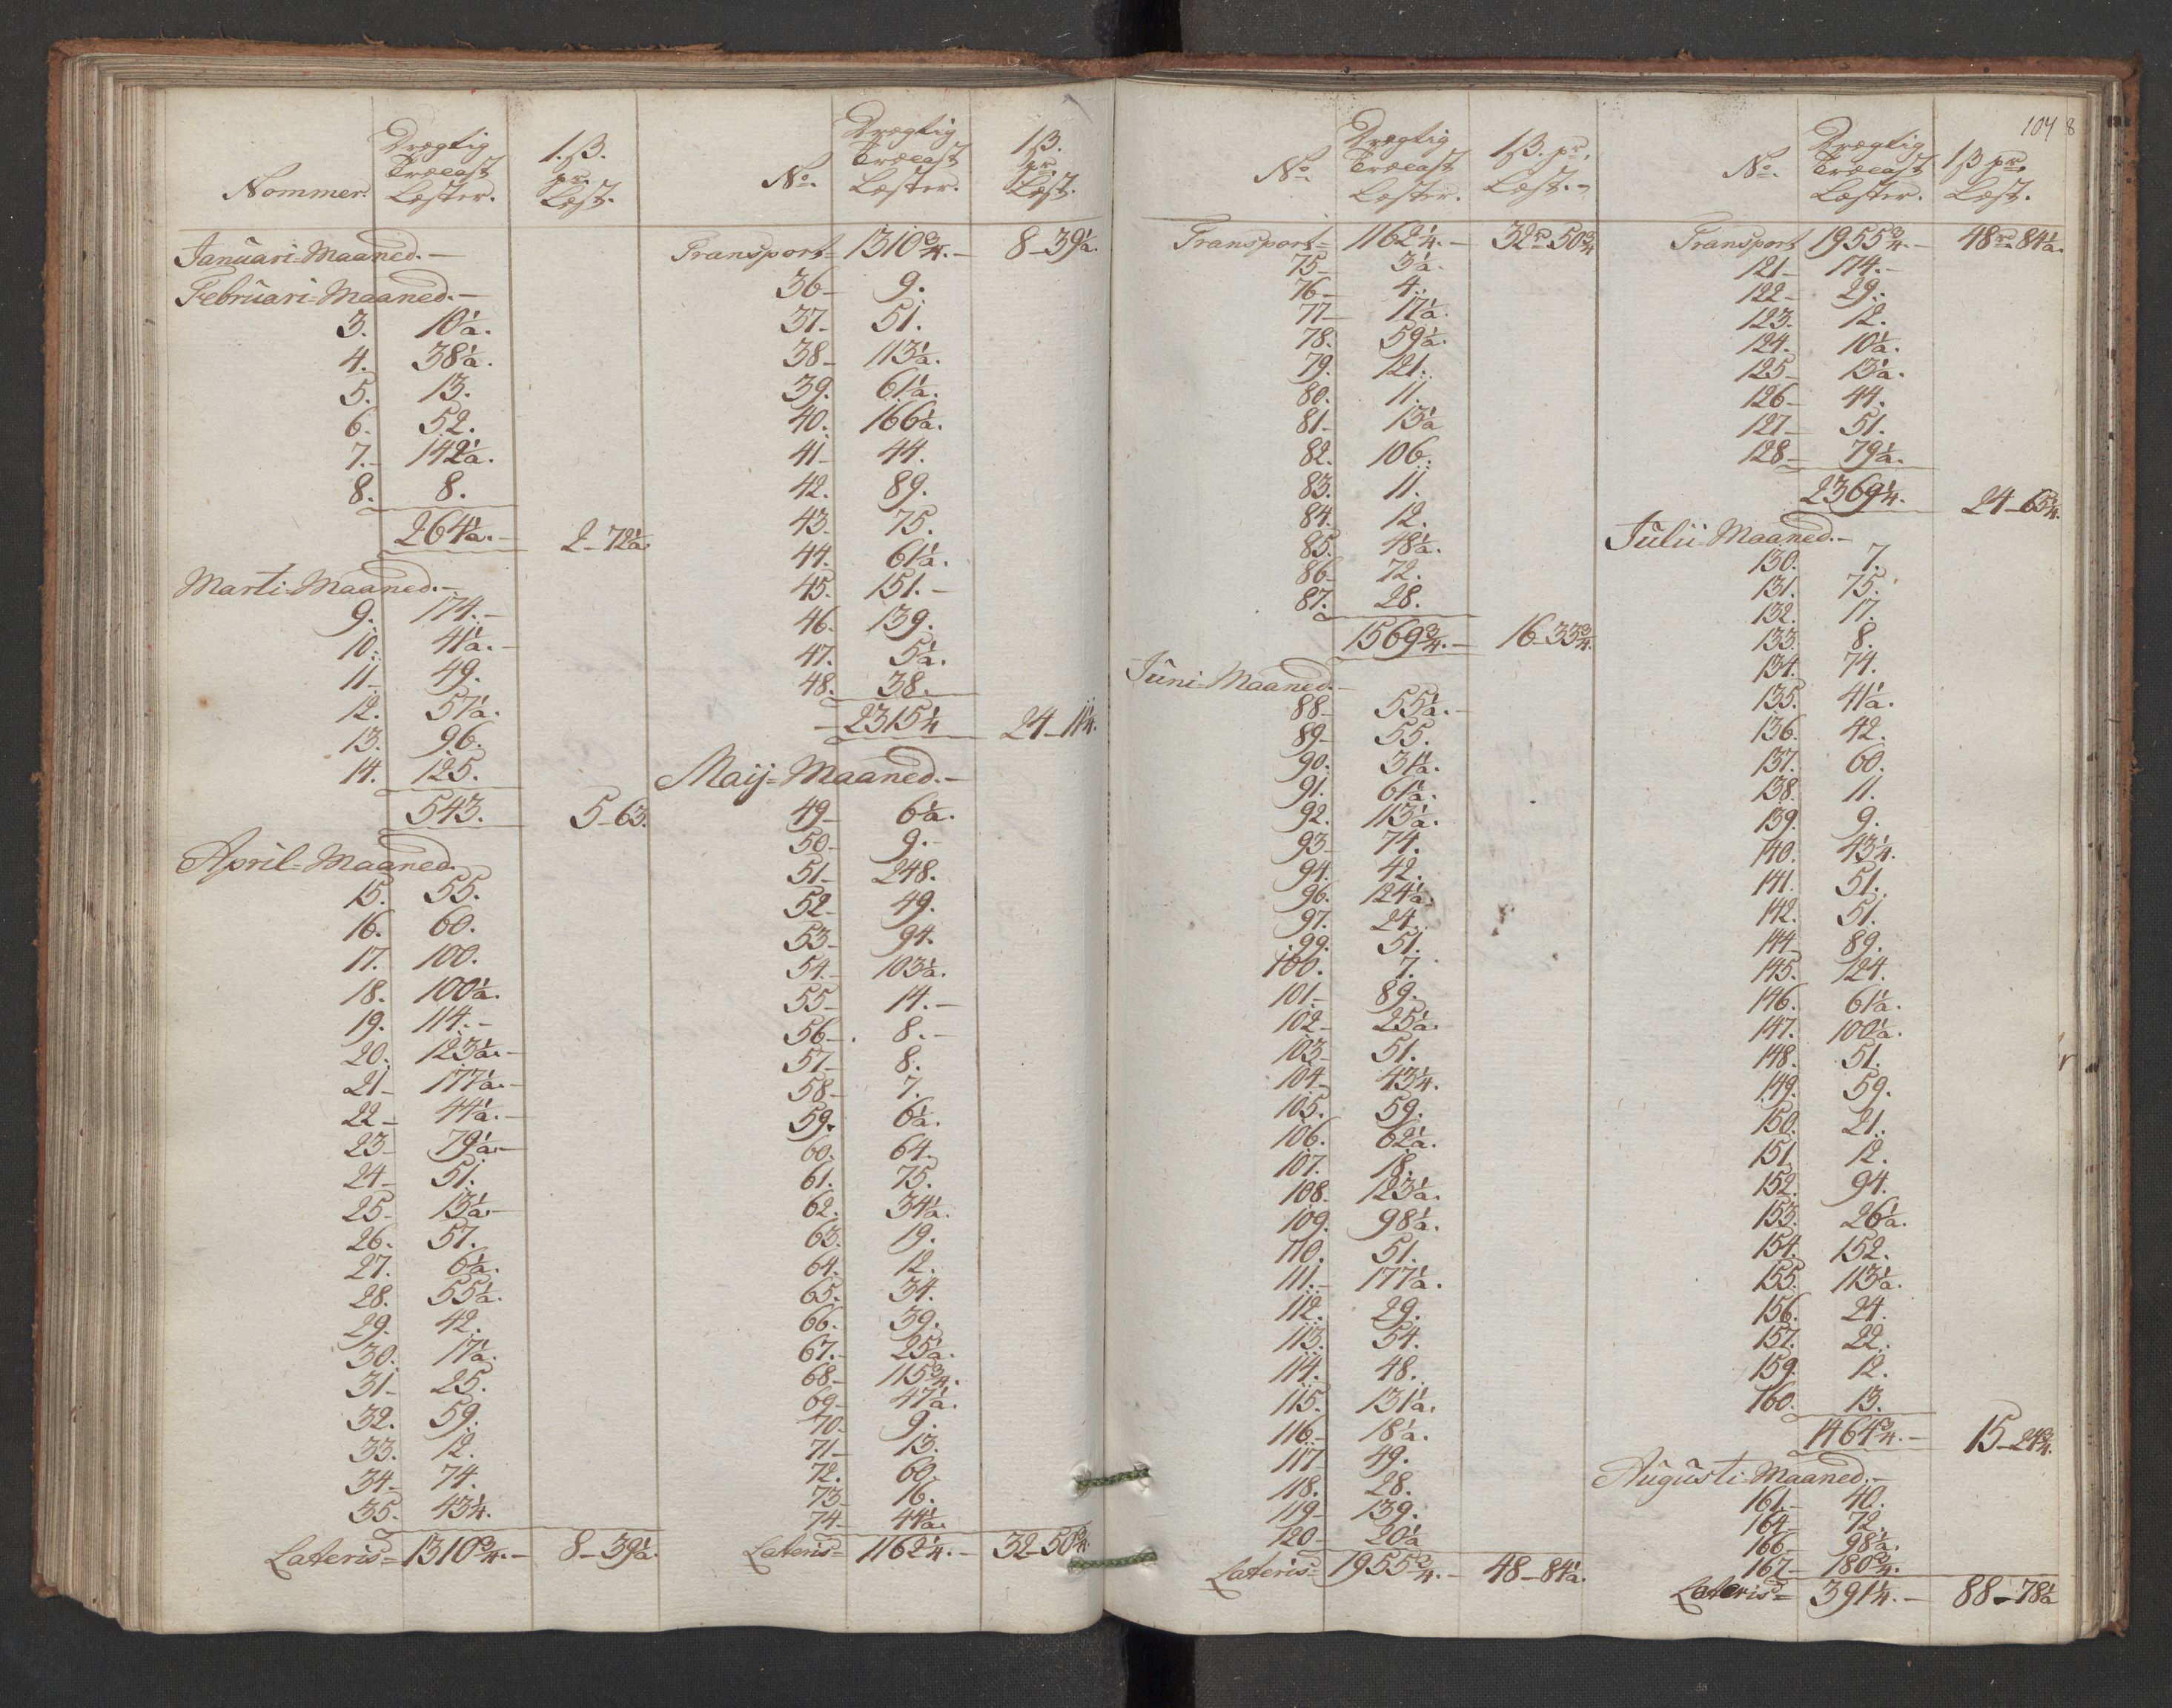 Nommer. Drægtig Trælast Læster. 1 ß. pr. Læst.
Januari-Maaned.-
Februari-Maaned.-
3. 10½.
4. 38½.
5. 13.
6. 52.
7. 142½.
8. 8.
264½.- 2-72½.
Marti-Maaned.-
9. 174.-
10. 41½.-
11- 49.
12. 57½.
13. 96.
14. 125.
543. 5-63.
April-Maaned.
15. 55.
16. 60.
17. 100.
18. 100½.
19. 114.-
20. 123½.-
21- 177½.-
22- 44½.-
23- 79½.-
24- 51.
25- 13½.-
26. 57.
27. 6½.
28. 55½.
29. 42.
30. 17½.
31- 25.
32. 59.
33. 12.
34- 74.
35. 43¼.
Lateris= 1310¾.- 8-39½.
No. Drægtig Trælast Læster. 1 ß. pr. Læst.
Transport= 1310¾.- 8-39½.
36- 9.
37- 51.
38- 113½.
39. 61½.
40. 166½.
41- 44.
42. 89.
43- 75.
44. 61½.
45. 151.-
46. 139.
47. 5½.
48. 38.
2315¼ 24-11¼.
Maij-Maaned.-
49- 6½.
50- 9.-
51- 248.
52- 49.
53- 94.
54- 103½.
55- 14.-
56- 8.-
57- 8.
58- 7.
59. 6½.
60. 64.
61. 75.
62. 34½.
63. 19.
64. 12.
65. 34.
66. 39.
67.- 25½.
68- 115¾.
69- 47½.
70- 9.
71- 13.
72. 60.
73- 16.
74- 44½.
Lateris= 1162¼.- 32-50¾.
1048
No. Drægtig Trælast Læster. 1 ß. pr. Læst.-
Transport= 1162¼.- 32rd 50¾
75- 3½.
76- 4.
77- 17½.
78. 59½.
79. 121.
80. 11.
81- 13½
82. 106.
83. 11.
84. 12.
85. 48½.
86- 72.
87. 28.
1569¾.- 16-33¾.
Juni-Maaned.-
88- 55½.-
89- 55.
90. 31½.
91. 61½.
92. 113½.
93- 74.
94. 42.
96. 124½.
97. 24.
99. 51.
100. 7.
101.- 89.
102- 25½.
103- 51.
104- 43¼.
105. 59.
106. 62½.
107. 18.
108. 123½.
109. 98½.
110. 51.
111.- 177½.
112. 29.
113. 54.
114. 48.
115. 131½.
116.- 18½.
117- 49.
118. 28.
119- 139.
120- 20½
Lateris= 1955¾.- 48-84½.
No. Drægtig Trælast Læster. 1 ß pr. Læst.
Transport 1955¾.- 48rd 84½.
121- 174.-
122- 29.
123. 12.
124. 10½.
125- 13½.
126- 44.
127- 51.
128- 79½.
2369¼. 24-65¾.
Julii-Maaned.-
130. 7.
131. 75.
132. 17.
133. 8.
134. 74.
135. 41½.
136. 42.
137. 60.
138. 11.
139. 9.
140. 43¼.
141. 51.
142. 51.
144- 89.
145. 124.
146. 61½.
147. 100½.
148. 51.
149. 59.
150. 21.
151. 12.
152. 94.
153. 26½.
154. 152.
155. 113½.
156. 24.
157. 22.
159. 12.
160. 13.
1464¾.- 15-24¾.
Augusti-Maaned.-
161.- 40.
164- 72.
166- 98½.
167- 180¾.
Lateris= 391¼.- 88-78½